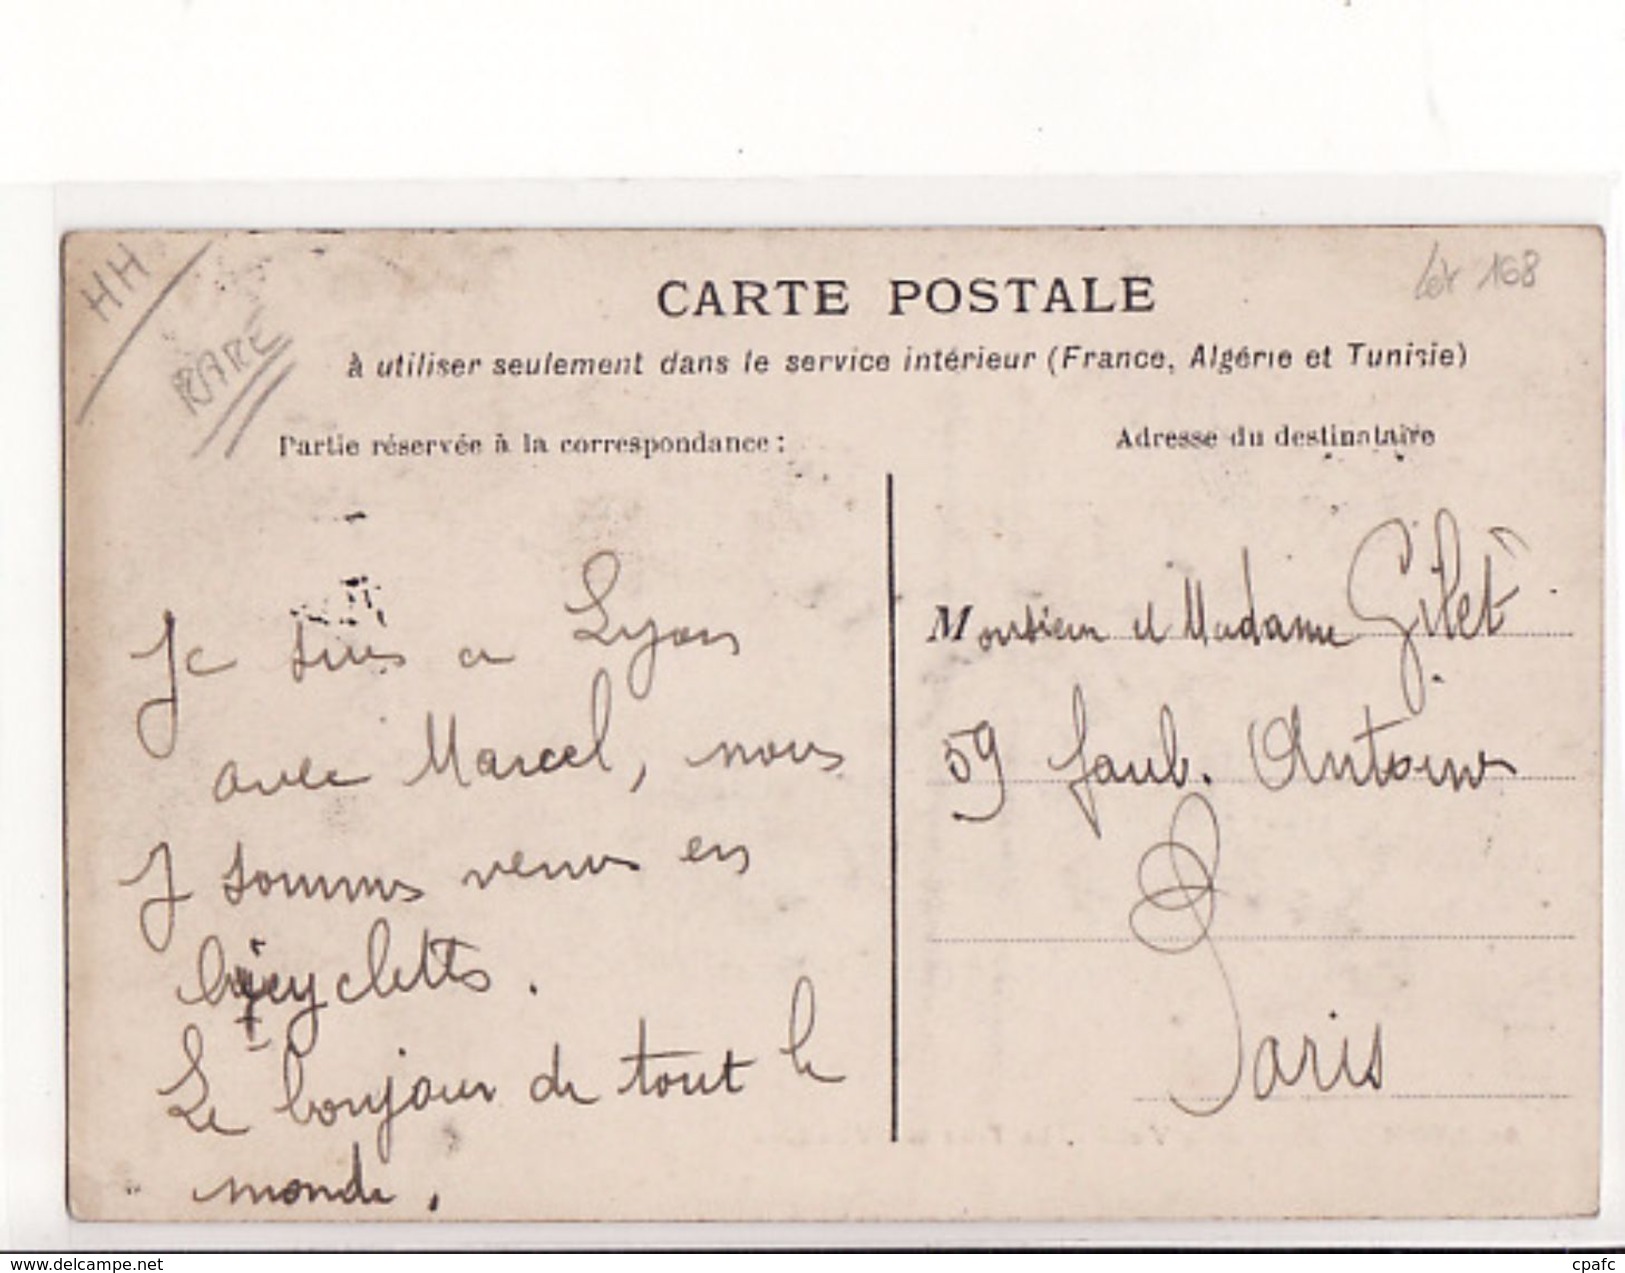 HH
RARE
Lot 168
CARTE POSTALE
à utiliser seulement dans le service intérieur (France, Algérie et Tunisie)
Partie réservée à la correspondance :
Je suis a Lyon
avec Marcel, nous
y sommes venus en
bicyclettes.
Le bonjour de tout le
monde.
Adresse du destinataire
Monsieur et Madame Gilet
59 faub. Antoine
Paris
www.delcampe.net
cpafc